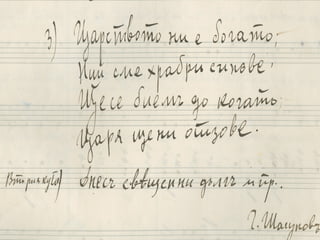 3) Царството ни е богато,
Ний сме храбри синове,
Щесе биемъ до когать
Царя щени отзове.
Втори куб) Днесъ свѣщенни дългъ и пр..